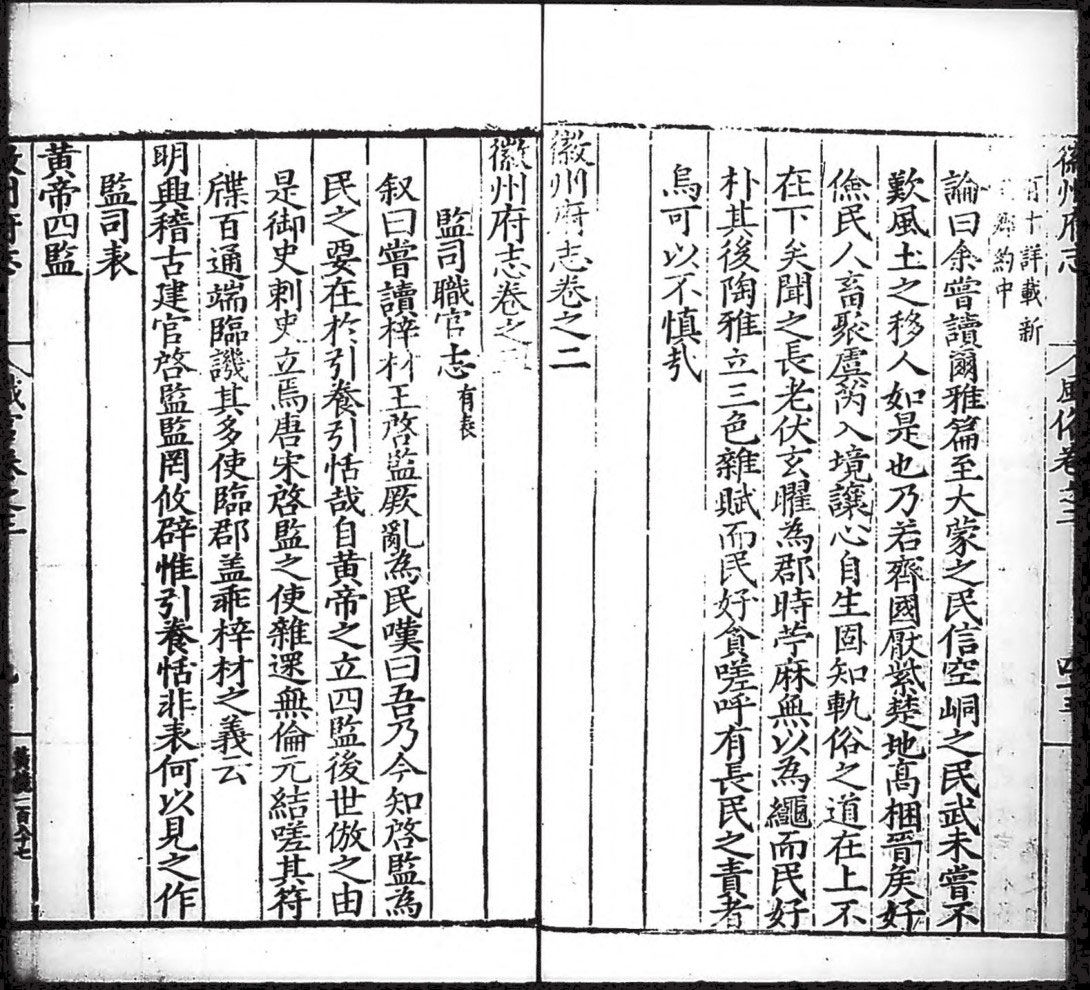 徽州府志
風俗卷之二
四十五
詳載新
鄉約中
論曰余嘗讀爾雅篇至大蒙之民信空峒之民武未嘗不
歎風土之移人如是也乃若齊國厭紫楚地高梱晉矦好
儉民人畜聚盧芮入境讓心自生固知軌俗之道在上不
在下矣聞之長老伏玄曜為郡時苧麻無以為繩而民好
朴其後陶雅立三色雜賦而民好貪嗟呼有長民之責者
烏可以不慎㢤
徽州府志卷之二
徽州府志卷之
監司職官志有表
叙曰嘗讀梓材王啓監厥亂為民嘆曰吾乃今知啓監為
民之要在於引養引恬哉自黃帝之立四監後世倣之由
是御史刺史立焉唐宋啓監之使雜遝無倫元結嗟其符
牒百通端臨譏其多使臨郡盖乖梓材之義云
明興稽古建官啓監監罔攸辟惟引養恬非表何以見之作
監司表
黃帝四監
徽州府志
職官卷之三
九
一百八十七